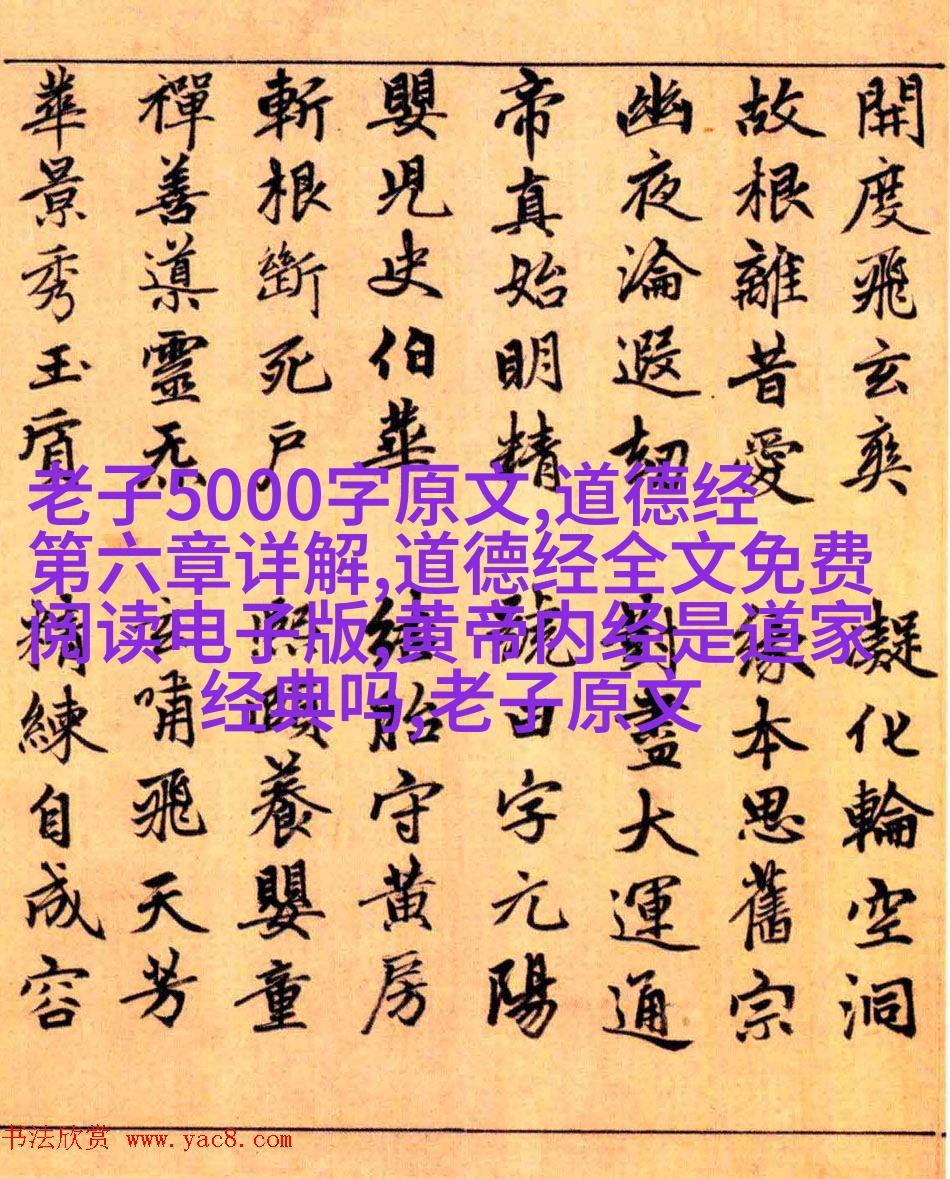 開度飛玄爽 凝化輪空洞
故根離昔愛 緣本思舊宗
幽夜淪遐劫 對盡大運通
帝真始明精 號曰字元陽
嬰兒史伯華 結胎守黃房
斬根斷死戶 熙頤養嬰童
禪善導靈无 嘯飛天芳
華景秀玉質 精練自成容
老子5000字原文,道德经
第六章详解,道德经全文免费
阅读电子版,黄帝内经是道家
经典吗,老子原文
书法欣赏 www.yac8.com